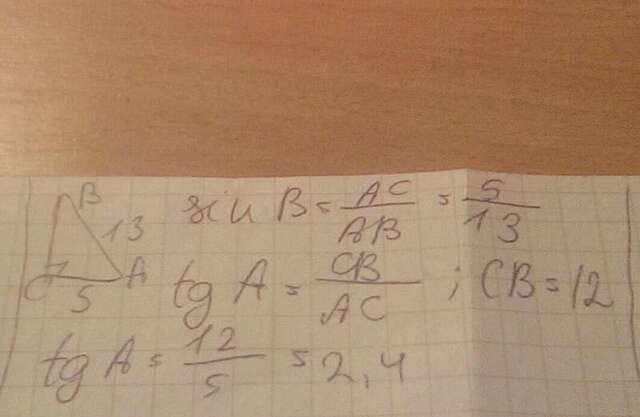 B sin B = AC/AB = 5/13
13
C 5 A tg A = CB/AC ; CB = 12
tg A = 12/5 = 2,4